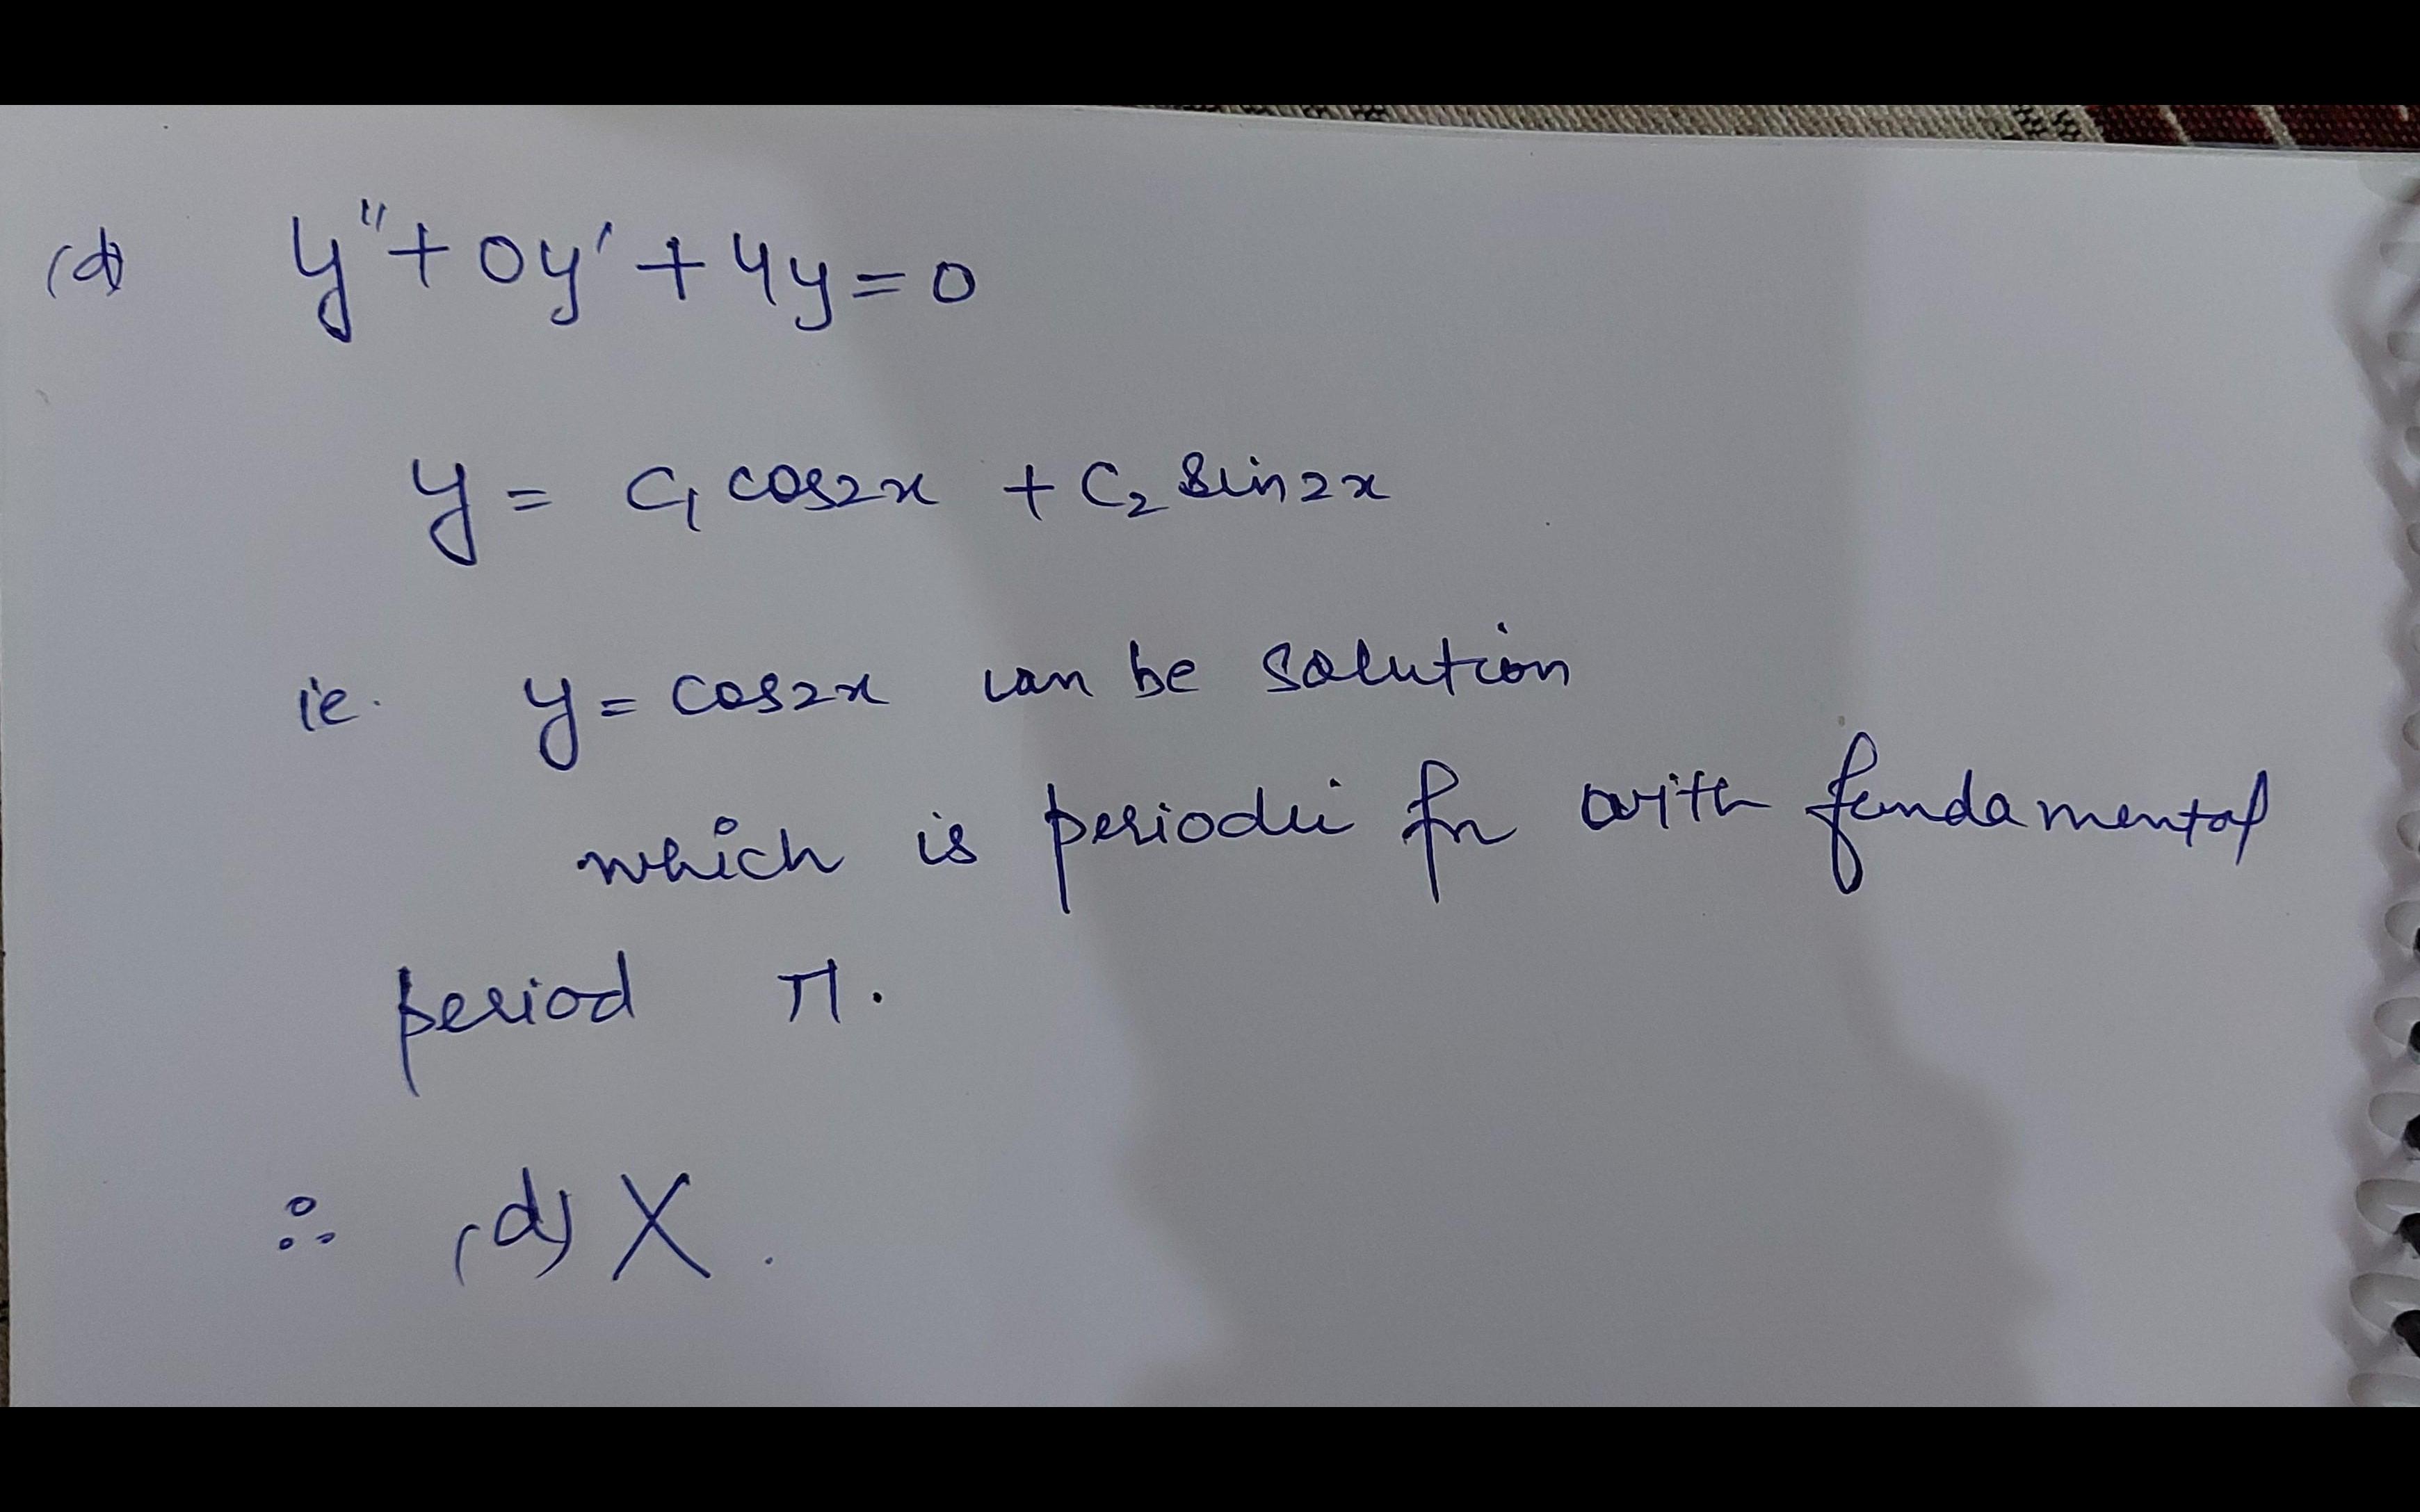 (d) y" + 0y' + 4y = 0
y = C₁ cos2x + C₂ sin2x
ie. y = cos2x can be solution
which is periodic fn with fundamental
period π.
∴ (d) X.